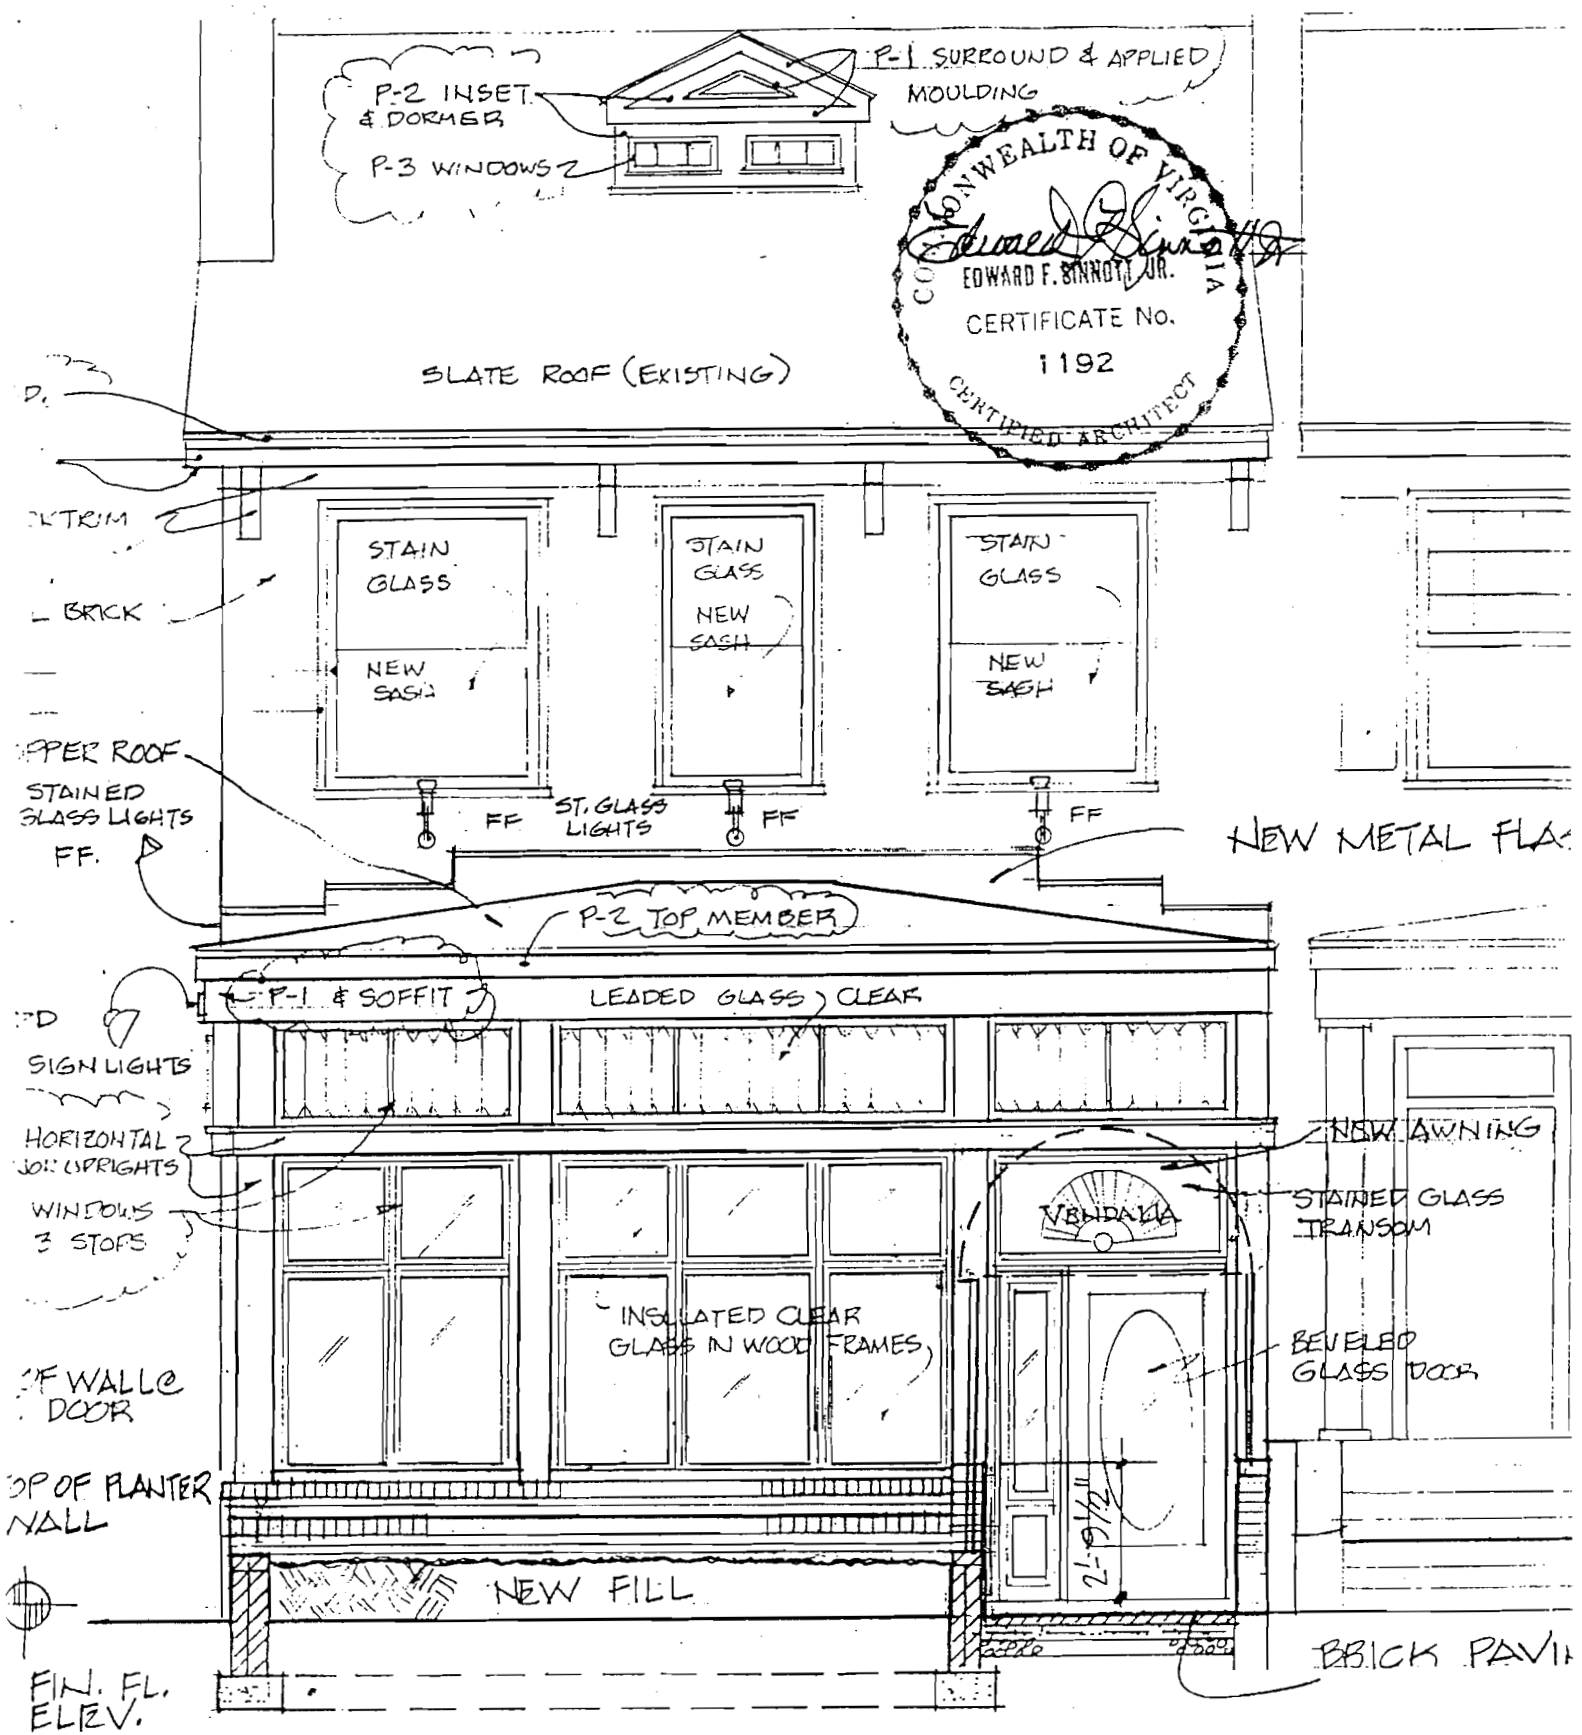 P-1 SURROUND & APPLIED
MOULDING
P-2 INSET
& DORMER
P-3 WINDOWS
COMMONWEALTH OF VIRGINIA
EDWARD F. SINNOTT, JR.
CERTIFICATE No.
1192
CERTIFIED ARCHITECT
SLATE ROOF (EXISTING)
D.
KTRIM
BRICK
STAIN
GLASS
NEW
SASH
STAIN
GLASS
NEW
SASH
STAIN
GLASS
NEW
SASH
PPER ROOF
STAINED
GLASS LIGHTS
FF.
FF
ST. GLASS
LIGHTS
FF
FF
NEW METAL FLAS
P-2 TOP MEMBER
P-1 & SOFFIT
LEADED GLASS, CLEAR
SIGN LIGHTS
HORIZONTAL
UPRIGHTS
WINDOWS
3 STOPS
NEW AWNING
STAINED GLASS
TRANSOM
VENDALIA
INSULATED CLEAR
GLASS IN WOOD FRAMES
BEVELED
GLASS DOOR
OF WALL @
DOOR
OP OF PLANTER
WALL
2'-9 1/2"
NEW FILL
BRICK PAVIN
FIN. FL.
ELEV.